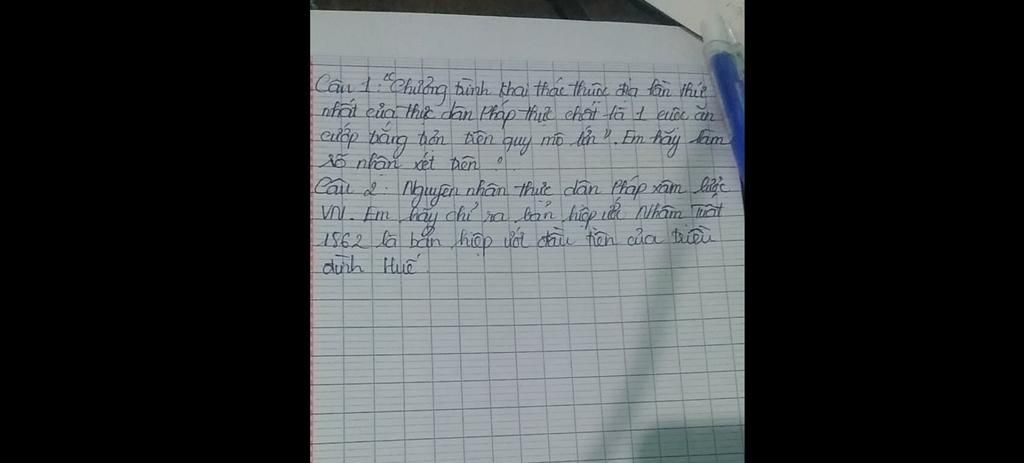 Câu 1: "Chương trình khai thác thuộc địa lần thứ
nhất của thực dân Pháp thực chất là 1 cuộc ăn
cướp trắng trợn trên quy mô lớn". Em hãy làm
rõ nhận xét trên?
Câu 2: Nguyên nhân thực dân Pháp xâm lược
VN. Em hãy chỉ ra bản hiệp ước Nhâm Tuất
1862 là bản hiệp ước đầu tiên của triều
đình Huế